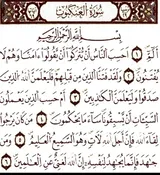 سورة العنكبوت
بسم الله الرحمن الرحيم
الٓمٓ ١ أَحَسِبَ النَّاسُ أَن يُتْرَكُوٓا۟ أَن يَقُولُوٓا۟ ءَامَنَّا وَهُمْ لَا
يُفْتَنُونَ ٢ وَلَقَدْ فَتَنَّا الَّذِينَ مِن قَبْلِهِمْ فَلَيَعْلَمَنَّ اللَّهُ الَّذِينَ
صَدَقُوا۟ وَلَيَعْلَمَنَّ الْكَٰذِبِينَ ٣ أَمْ حَسِبَ الَّذِينَ يَعْمَلُونَ
مَن كَانَ يَرْجُوا۟
لِقَآءَ اللَّهِ فَإِنَّ أَجَلَ اللَّهِ لَءَاتٍ وَهُوَ السَّمِيعُ الْعَلِيمُ ٥ وَمَن
جَٰهَدَ فَإِنَّمَا يُجَٰهِدُ لِنَفْسِهِۦٓ إِنَّ اللَّهَ لَغَنِىٌّ عَنِ الْعَٰلَمِينَ ٦